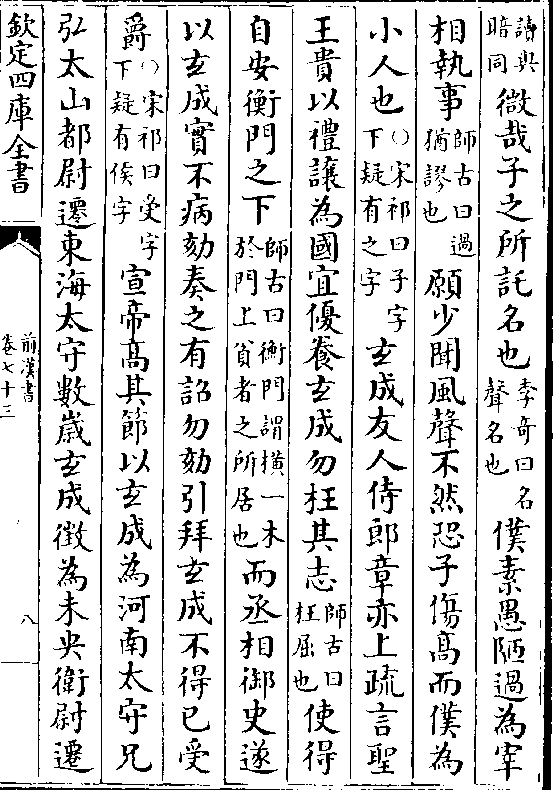 讀與暗同微哉子之所託名也李奇曰名聲名也僕素愚陋過為宰
相執事師古曰過猶謬也願少聞風聲不然恐子傷髙而僕為
小人也○宋祁曰子字下疑有之字玄成友人侍郎章亦上疏言聖
王貴以禮讓為國宜優養玄成勿枉其志師古曰枉屈也使得
自安衡門之下師古曰衡門謂橫一木於門上貧者之所居也而丞相御史遂
以玄成實不病劾奏之有詔勿劾引拜玄成不得已受
爵○宋祁曰受字下疑有侯字宣帝髙其節以玄成為河南太守兄
弘太山都尉遷東海太守數歳玄成徵為未央衛尉遷
欽定四庫全書
前漢書
卷七十三
八